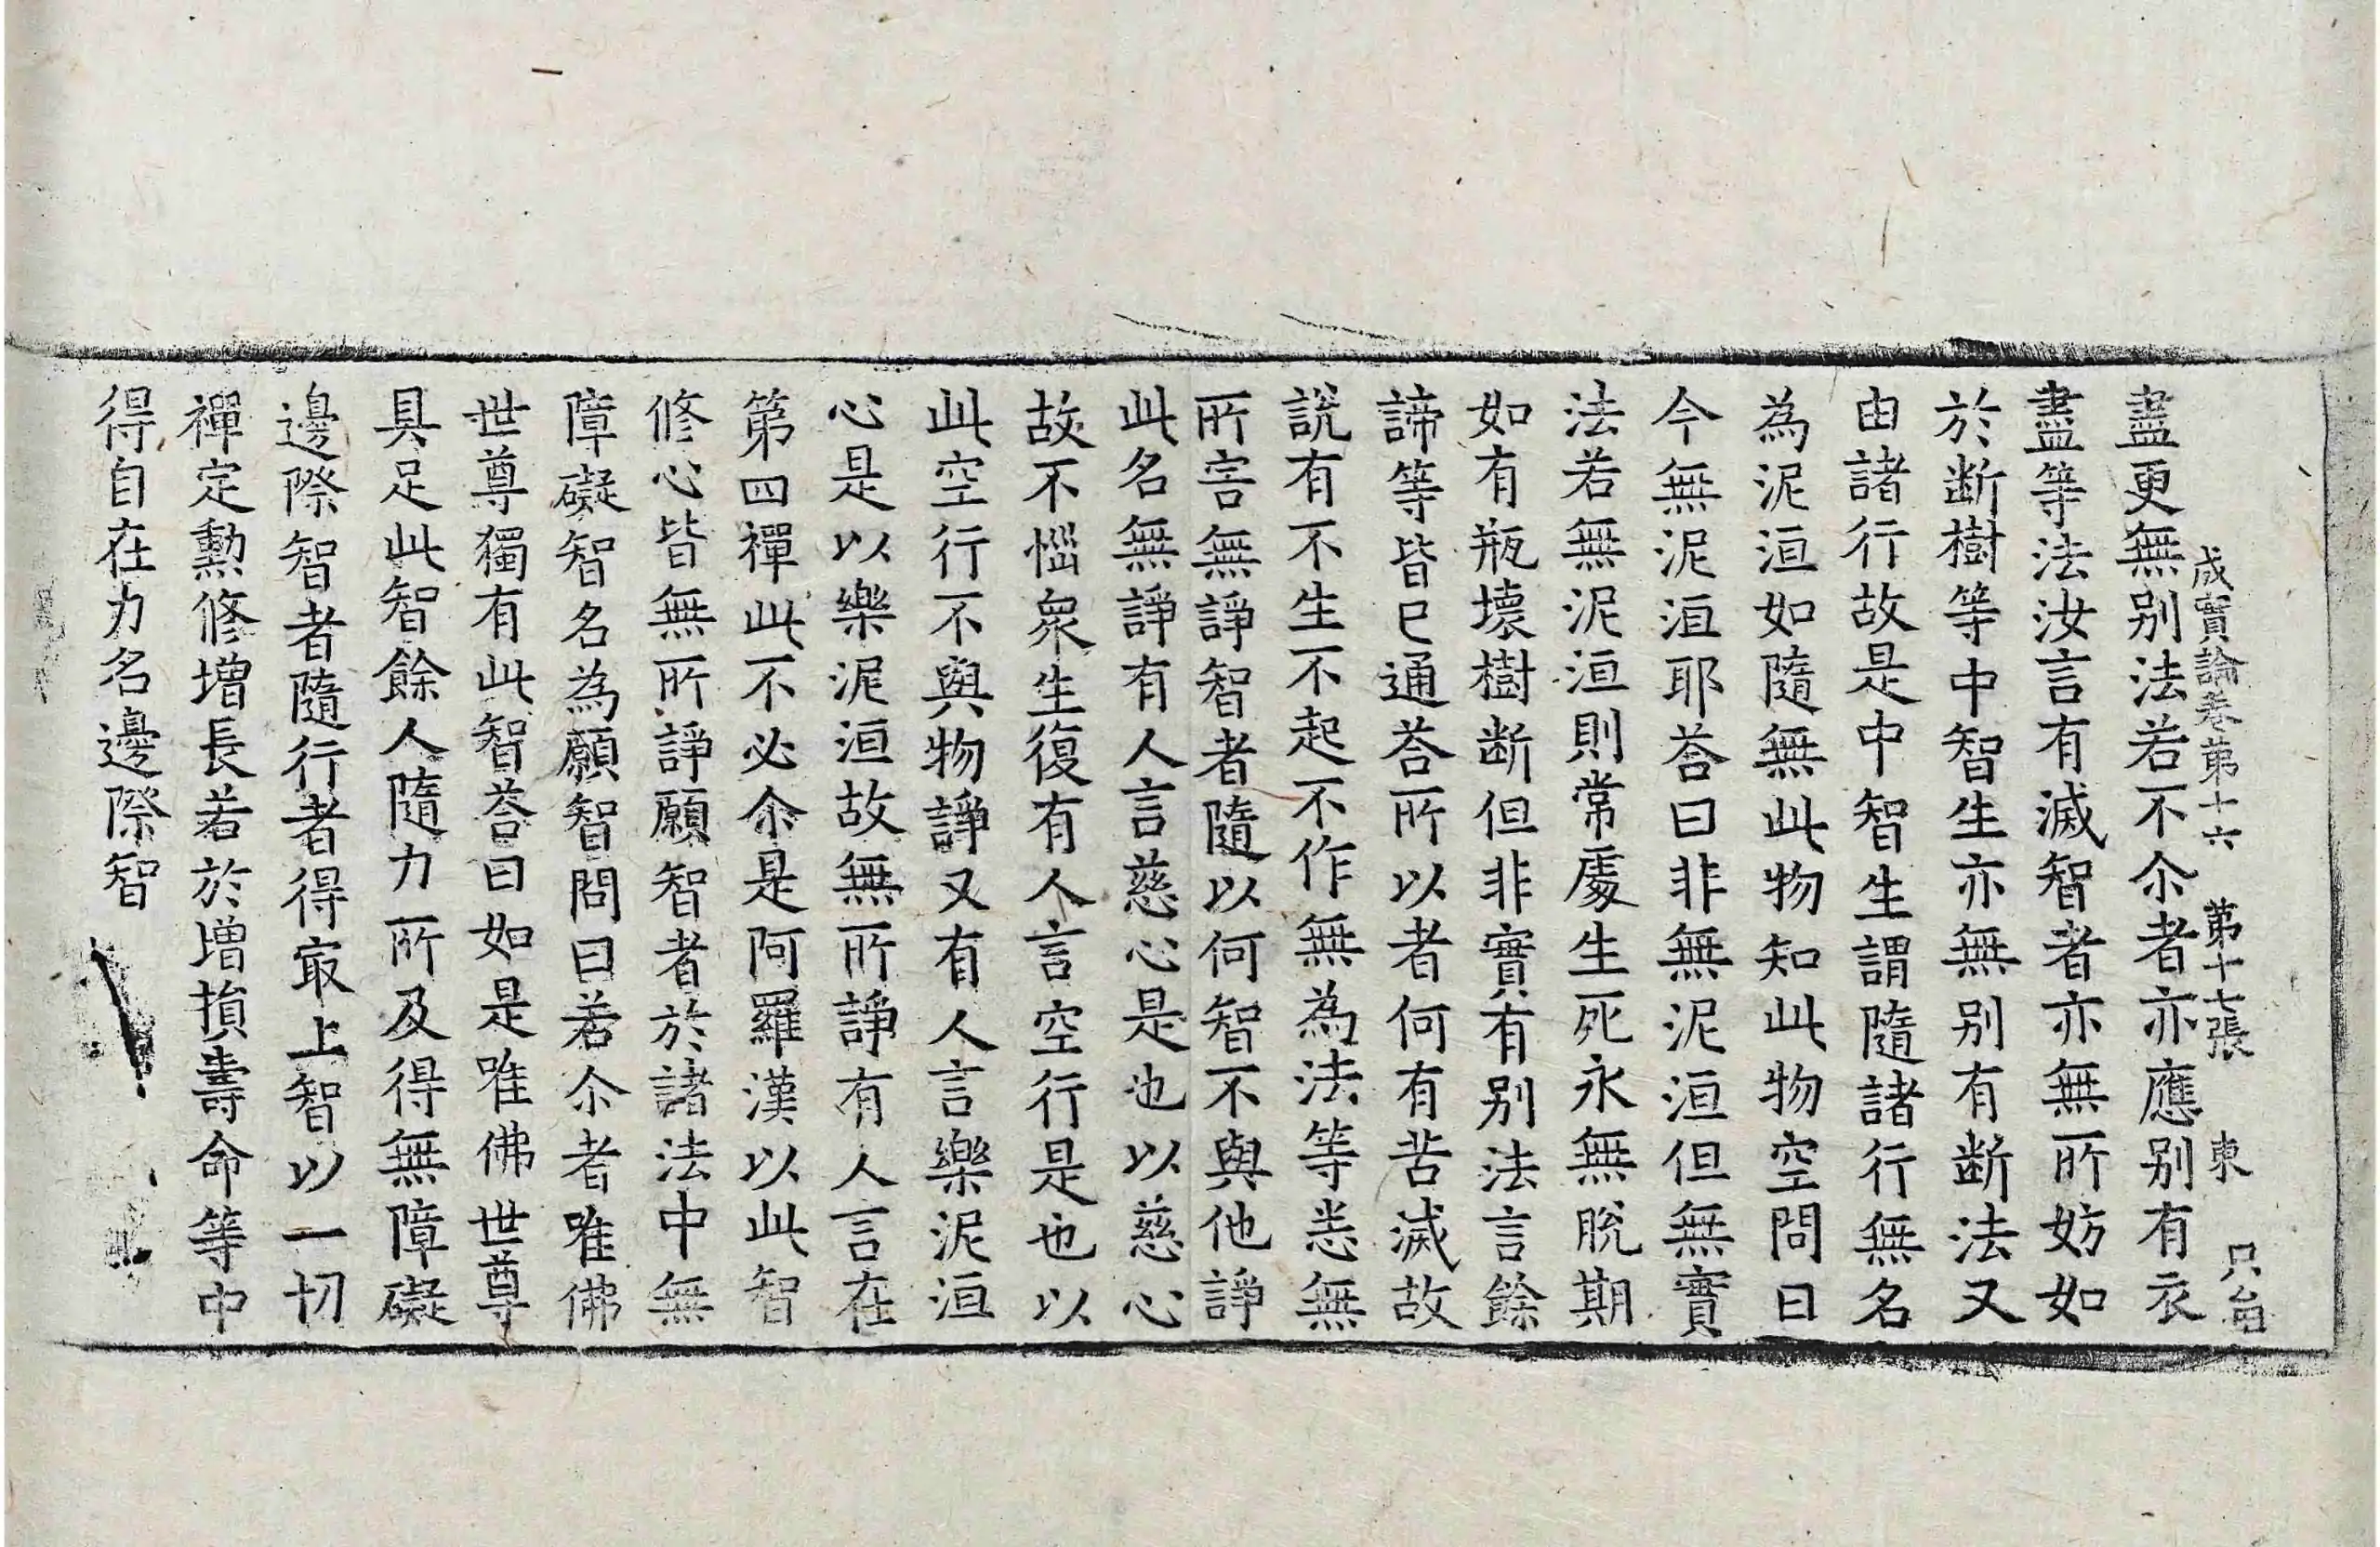 成實論卷第十六 第十七張 東 只台
盡更無别法若不尒者亦應别有衣
盡等法汝言有滅智者亦無所妨如
於断樹等中智生亦無别有断法又
由諸行故是中智生謂隨諸行無名
為泥洹如隨無此物知此物空問曰
今無泥洹耶荅曰非無泥洹但無實
法若無泥洹則常處生死永無脫期
如有瓶壞樹断但非實有别法言餘
諦等皆已通荅所以者何有苦滅故
說有不生不起不作無為法等恙無
所害無諍智者隨以何智不與他諍
此名無諍有人言慈心是也以慈心
故不惱衆生復有人言空行是也以
此空行不與物諍又有人言樂泥洹
心是以樂泥洹故無所諍有人言在
第四禪此不必尒是阿羅漢以此智
修心皆無所諍願智者於諸法中無
障礙智名為願智問曰若尒者唯佛
世尊獨有此智荅曰如是唯佛世尊
具足此智餘人隨力所及得無障礙
邊際智者隨行者得㝡上智以一切
禪定勳修增長若於增損壽命等中
得自在力名邊際智